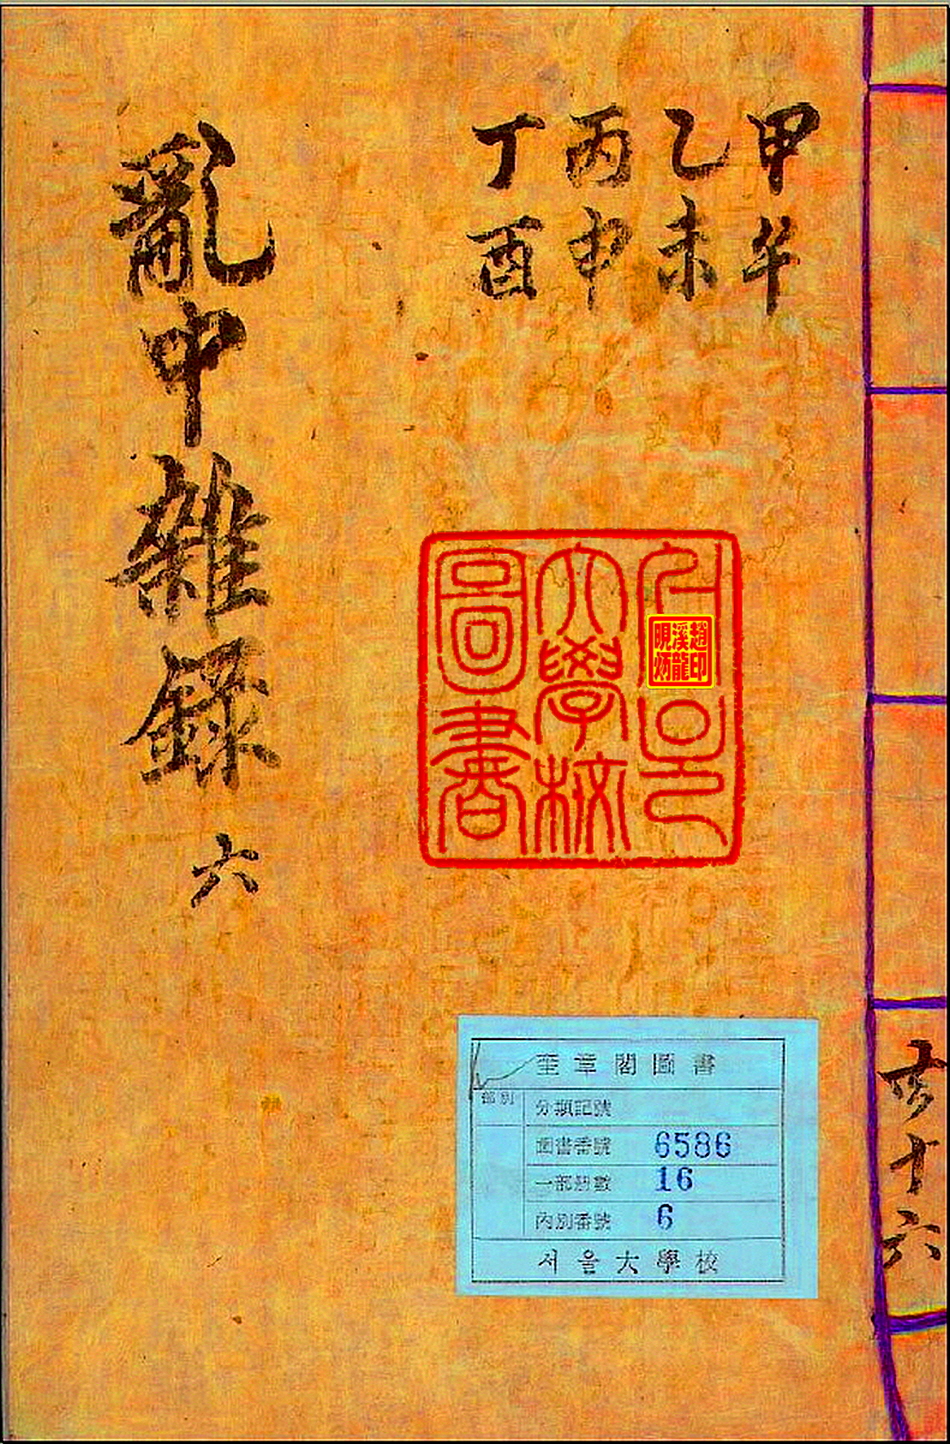 甲午
乙未
丙申
丁酉
亂中雜錄 六
서울
大學校
圖書
趙印
溪龍
奎章閣圖書
部別
分類記號
圖書番號 6586
一部冊數 16
內別番號 6
서울大學校
共十六